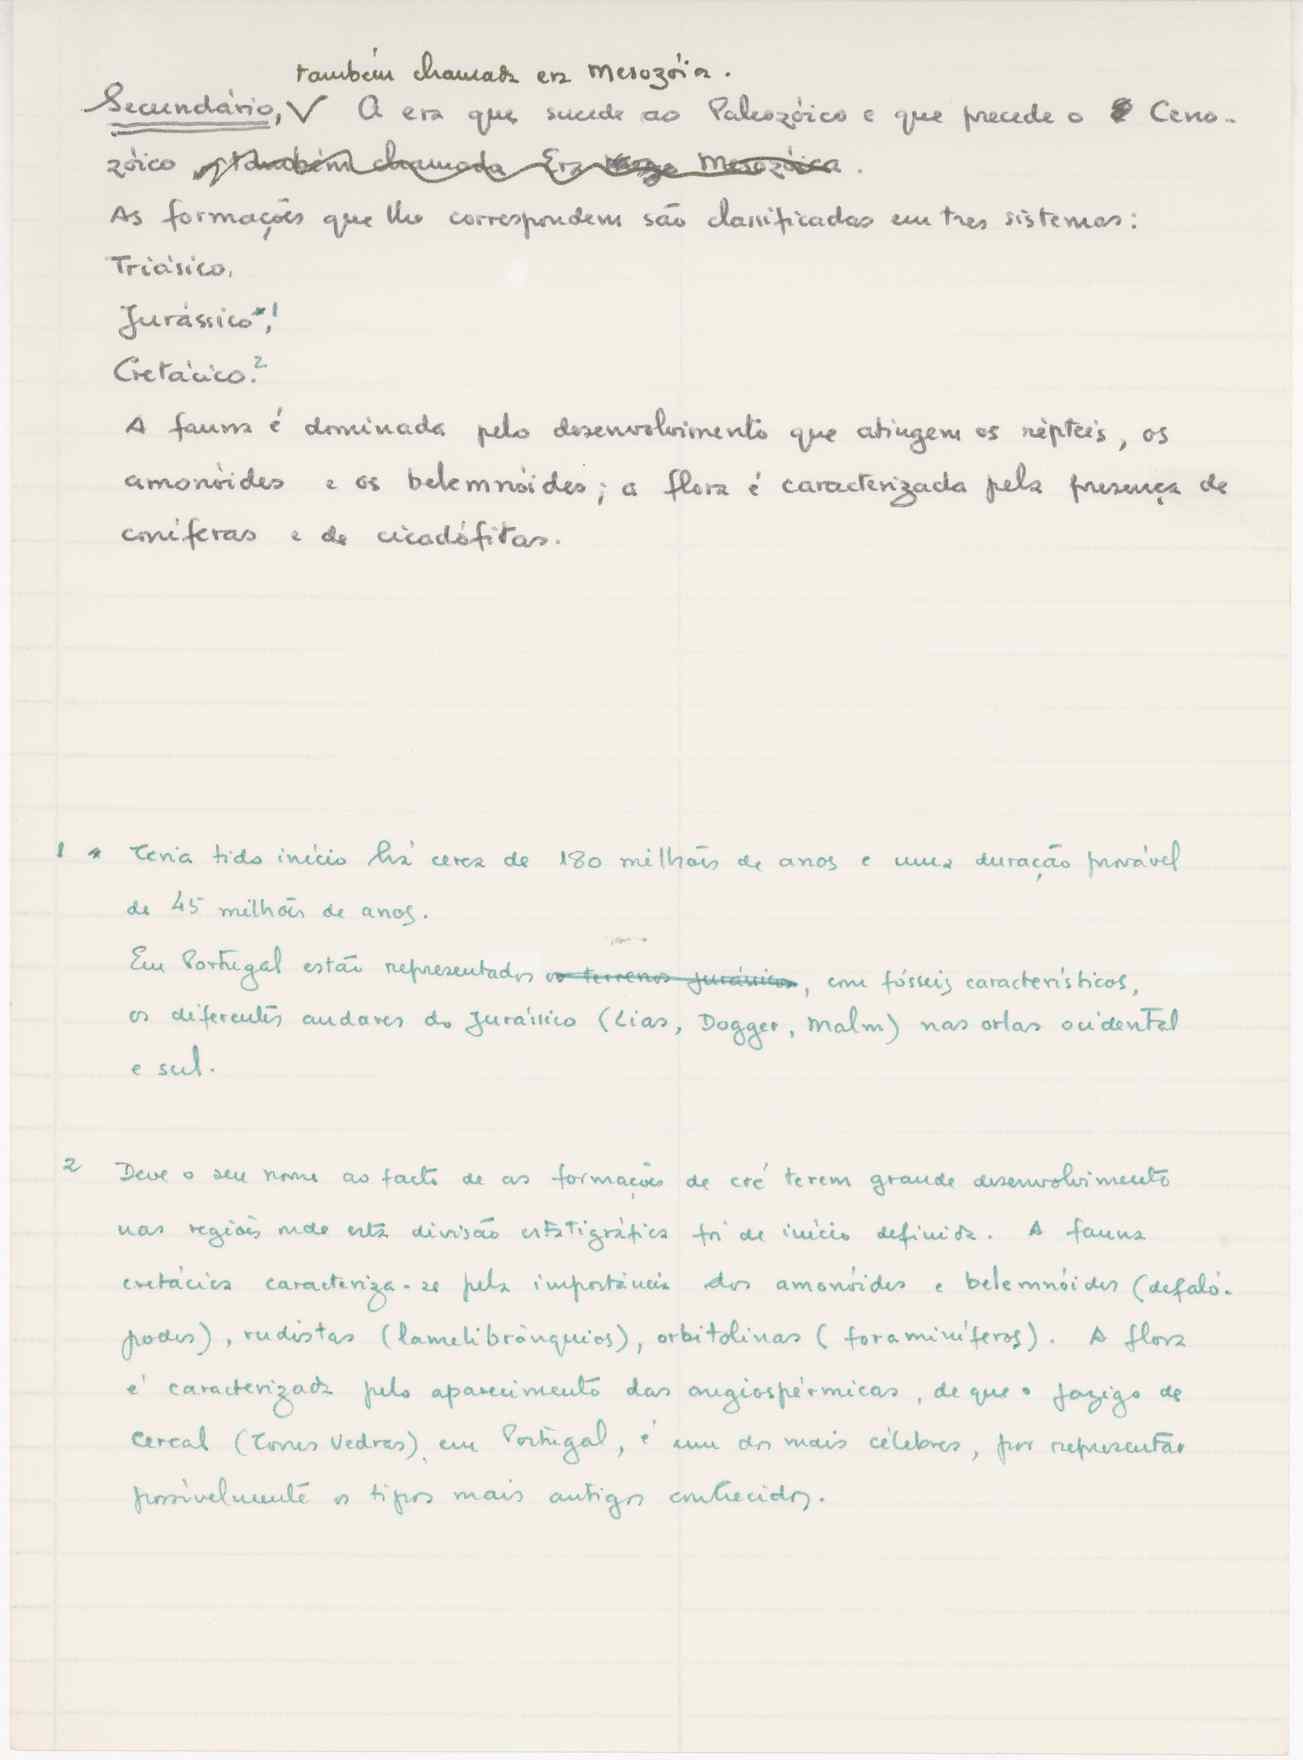 também chamada era Mesozóica.
Secundário, V A era que sucede ao Paleozóico e que precede o Ceno-
zóico também chamada Era Mesozóica.
As formações que lhe correspondem são classificadas em tres sistemas:
Triásico,
Jurássico*,1
Cretácico.2
A fauna é dominada pelo desenvolvimento que atingem os répteis, os
amonóides e os belemnóides; a flora é caracterizada pela presença de
coníferas e de cicadófitas.
1 * Teria tido início há cerca de 180 milhões de anos e uma duração provável
de 45 milhões de anos.
Em Portugal estão representados os terrenos jurássicos, com fósseis característicos,
os diferentes andares do Jurássico (Lias, Dogger, Malm) nas orlas ocidental
e sul.
2 Deve o seu nome ao facto de as formações de cré terem grande desenvolvimento
nas regiões onde esta divisão estratigráfica foi de início definida. A fauna
cretácica caracteriza-se pela importância dos amonóides e belemnóides (cefaló-
podes), rudistas (lamelibrânquios), orbitolinas (foraminíferos). A flora
é caracterizada pelo aparecimento das angiospérmicas, de que o jazigo de
Cercal (Torres Vedras), em Portugal, é um dos mais célebres, por representar
possívelmente os tipos mais antigos conhecidos.